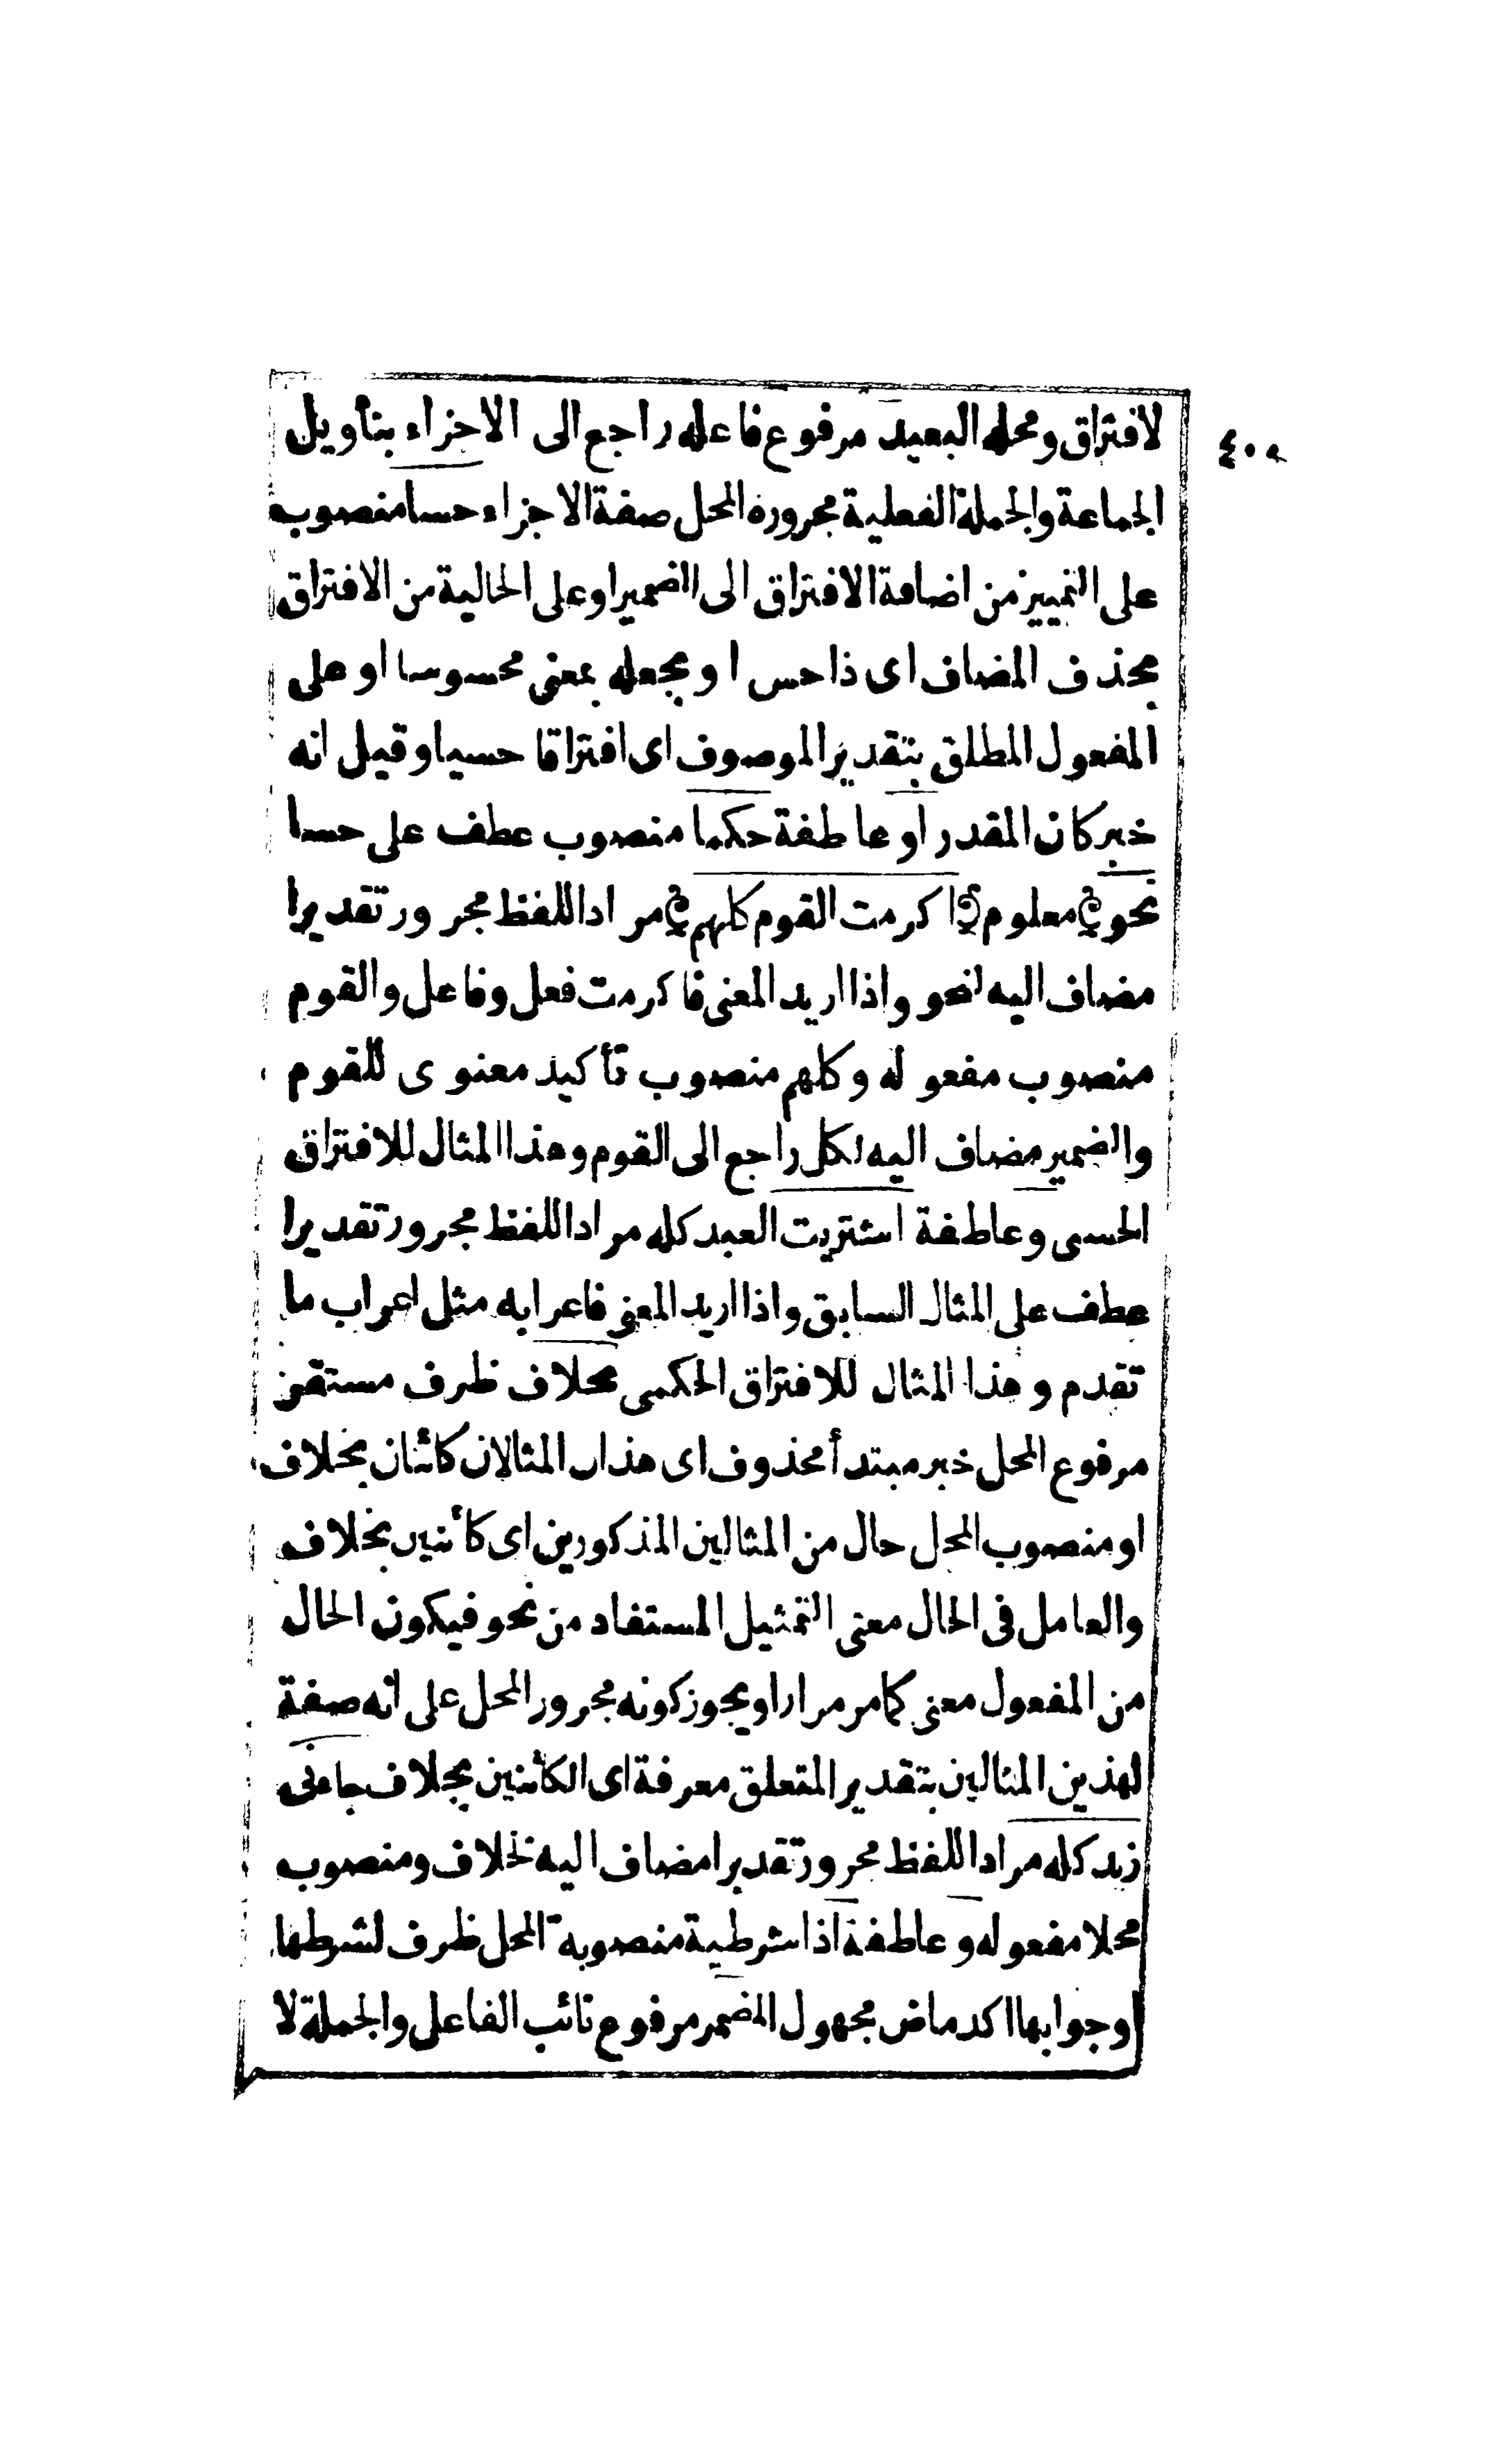 لافتراق ومحله البعيد مرفوع فاعله راجع الى الاجزاء بتأويل
الجماعة والجملة الفعلية مجرورة المحل صفة الاجزاء حسا منصوب
على التمييز من اضافة الافتراق الى الضمير او على الحالية من الافتراق
بحذف المضاف اى ذا حس او بجعله بمعنى محسوسا او على
المفعول المطلق بتقدير الموصوف اى افتراقا حسيا وقيل انه
خبر كان المقدر او عاطفة حكما منصوب عطف على حسا
نحو معلوم اكرمت القوم كلهم مراد اللفظ مجرور تقديرا
مضاف اليه لنحو واذا اريد المعنى فاكرمت فعل وفاعل والقوم
منصوب مفعو له وكلهم منصوب تأكيد معنوى للقوم
والضمير مضاف اليه لكل راجع الى القوم وهذا المثال للافتراق
الحسى وعاطفة اشتريت العبد كله مراد اللفظ مجرور تقديرا
عطف على المثال السابق واذا اريد المعنى فاعرابه مثل اعراب ما
تقدم وهذا المثال للافتراق الحكمى بخلاف ظرف مستقر
مرفوع المحل خبر مبتدأ محذوف اى هذان المثالان كائنان بخلاف
او منصوب المحل حال من المثالين المذكورين اى كائنين بخلاف
والعامل فى الحال معنى التمثيل المستفاد من نحو فيكون الحال
من المفعول معنى كما مر مرارا ويجوز كونه مجرور المحل على انه صفة
لهذين المثالين بتقدير المتعلق معرفة اى الكائنين بخلاف جاءنى
زيد كله مراد اللفظ مجرور تقديرا مضاف اليه لخلاف ومنصوب
محلا مفعو له وعاطفة اذا شرطية منصوبة المحل ظرف لشرطها
او جوابها اكد ماض مجهول المضمر مرفوع نائب الفاعل والجملة لا